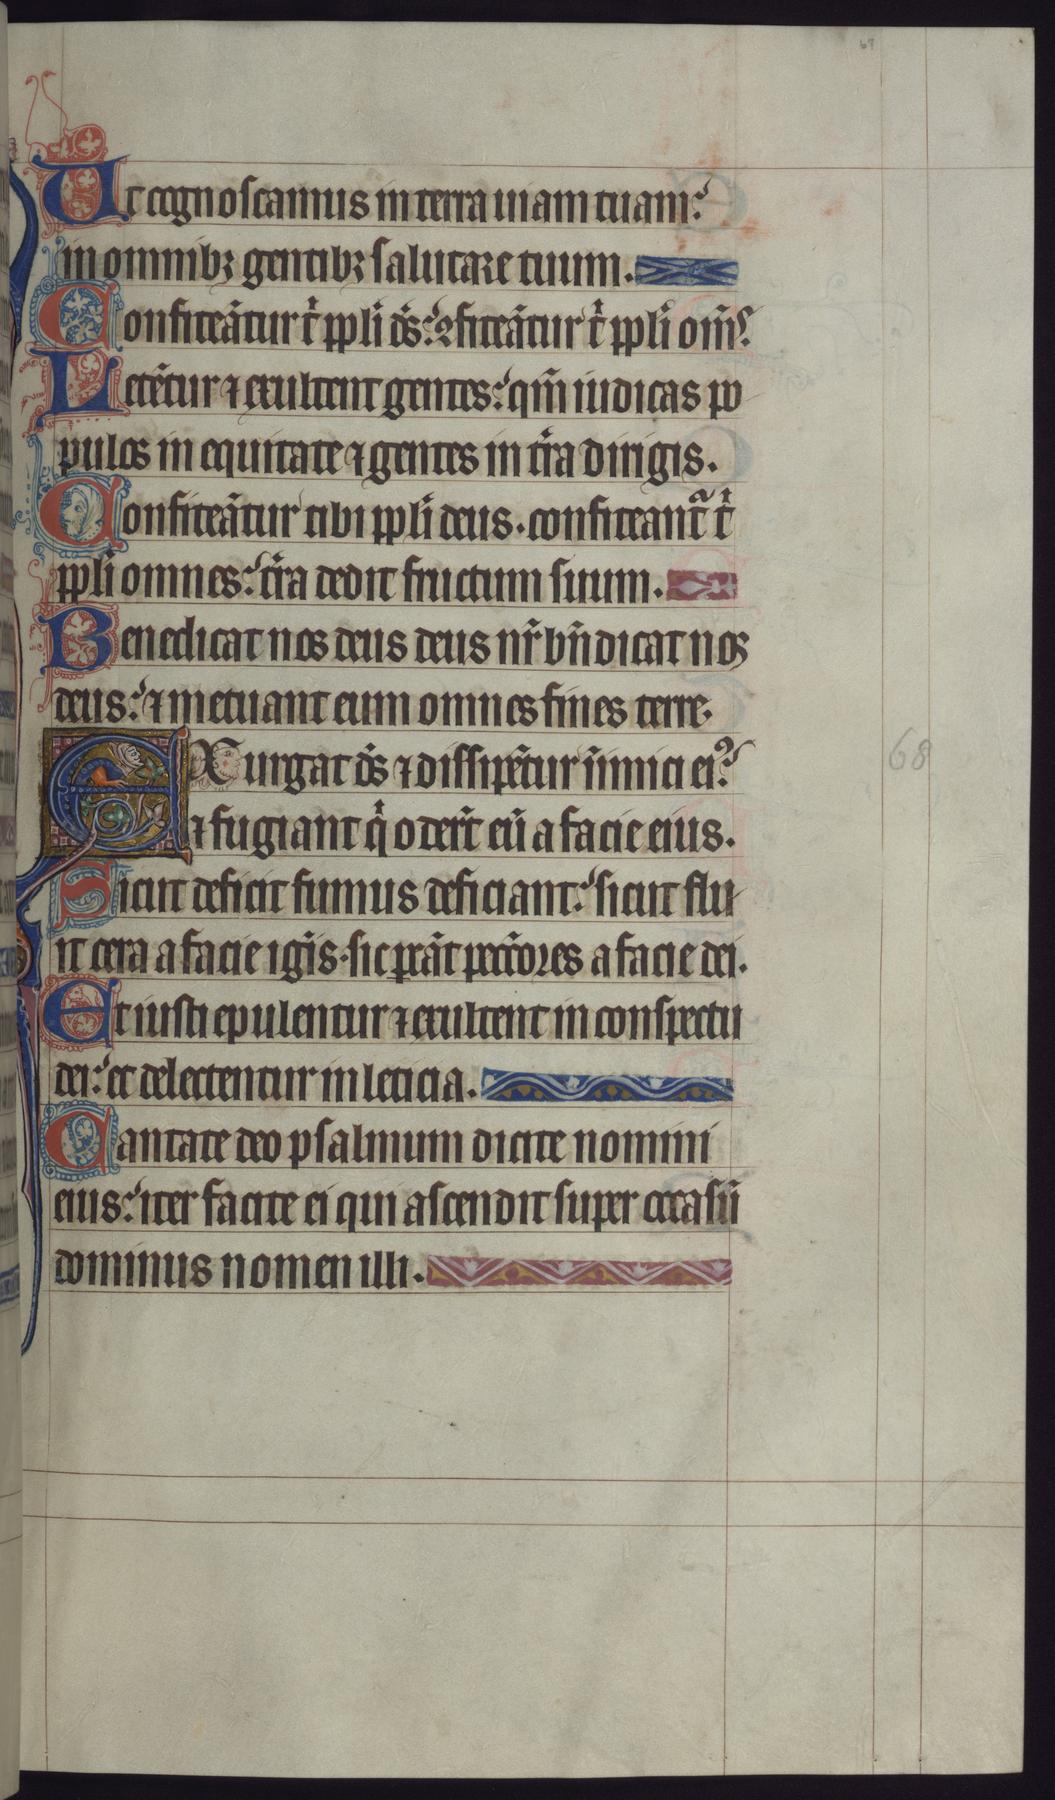 67
Ut cognoscamus in terra uiam tuam:
in omnibꝫ gentibꝫ salutare tuum.
Confiteãtur t̾ ppl̾i d̃s: ꝯfiteãtur t̾ ppl̾i om̃s.
Letẽtur ⁊ exultent gentes: qm̃ iudicas po
pulos in equitate ⁊ gentes in t̾ra dirigis.
Confiteãtur tibi ppl̾i deus. confiteant᷑ t̾
ppl̾i omnes: t̾ra dedit fructum suum.
Benedicat nos deus deus nr̃ bñdicat nos
deus: ⁊ metuant eum omnes fines terre.
EXurgat d̃s ⁊ dissipẽtur inimici eiꝰ:
⁊ fugiant q̾ oder̃t eũ a facie eius.
Sicut deficit fumus deficiant: sicut flu
it cera a facie ignis. sic ꝑeãt pecc̃ores a facie dei.
Et iusti epulentur ⁊ exultent in conspectu
dei: et delectentur in leticia.
Cantate deo psalmum dicite nomini
eius: iter facite ei qui ascendit super occasũ
dominus nomen illi.
68